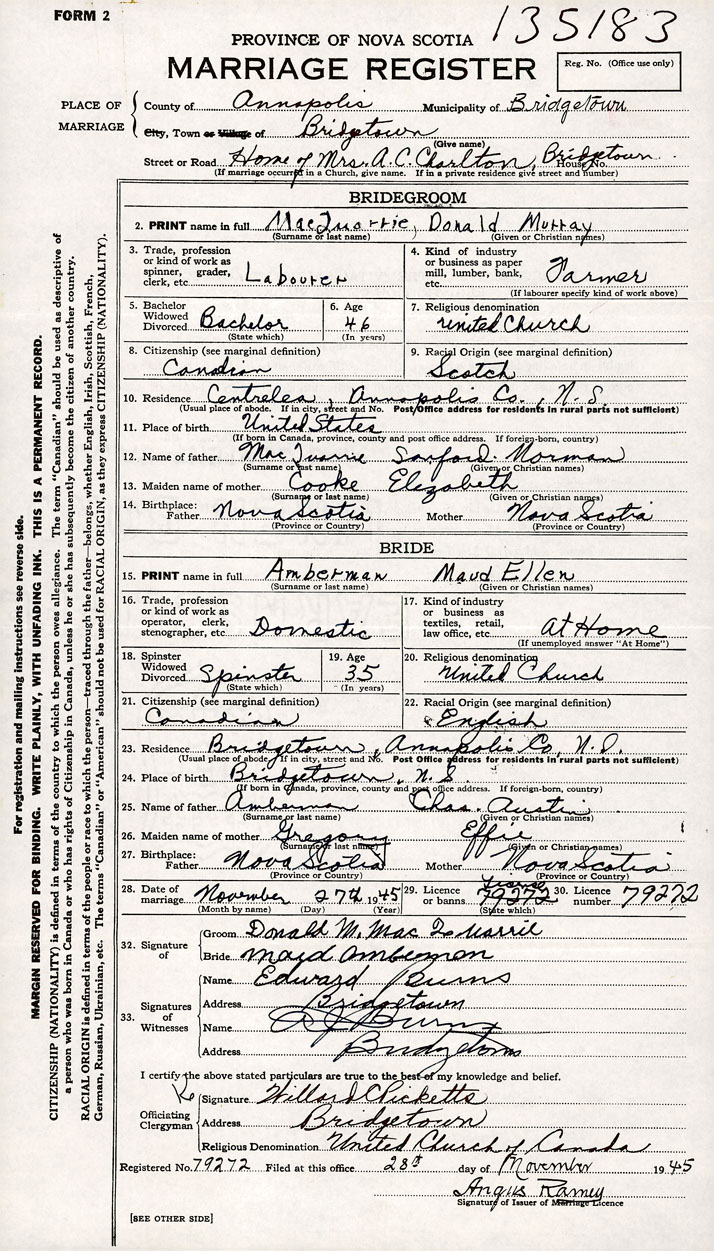 FORM 2
135183
PROVINCE OF NOVA SCOTIA
MARRIAGE REGISTER
Reg. No. (Office use only)
PLACE OF MARRIAGE
County of Annapolis Municipality of Bridgetown
City, Town or Village of Bridgetown
(Give name)
Street or Road Home of Mrs. A. C. Charlton, Bridgetown House No.
(If marriage occurred in a Church, give name. If in a private residence give street and number)
BRIDEGROOM
2. PRINT name in full MacQuarrie, Donald Murray
(Surname or last name) (Given or Christian names)
3. Trade, profession or kind of work as spinner, grader, clerk, etc. Labourer
4. Kind of industry or business as paper mill, lumber, bank, etc. Farmer
(If labourer specify kind of work above)
5. Bachelor Widowed Divorced Bachelor
(State which)
6. Age 46
(In years)
7. Religious denomination United Church
8. Citizenship (see marginal definition) Canadian
9. Racial Origin (see marginal definition) Scotch
10. Residence Centrelea, Annapolis Co., N.S.
(Usual place of abode. If in city, street and No. Post Office address for residents in rural parts not sufficient)
11. Place of birth United States
(If born in Canada, province, county and post office address. If foreign-born, country)
12. Name of father MacQuarrie Sanford Norman
(Surname or last name) (Given or Christian names)
13. Maiden name of mother Cooke Elizabeth
(Surname or last name) (Given or Christian names)
14. Birthplace: Father Nova Scotia Mother Nova Scotia
(Province or Country) (Province or Country)
BRIDE
15. PRINT name in full Amberman Maud Ellen
(Surname or last name) (Given or Christian names)
16. Trade, profession or kind of work as operator, clerk, stenographer, etc. Domestic
17. Kind of industry or business as textiles, retail, law office, etc. At Home
(If unemployed answer "At Home")
18. Spinster Widowed Divorced Spinster
(State which)
19. Age 35
(In years)
20. Religious denomination United Church
21. Citizenship (see marginal definition) Canadian
22. Racial Origin (see marginal definition) English
23. Residence Bridgetown, Annapolis Co, N.S.
(Usual place of abode. If in city, street and No. Post Office address for residents in rural parts not sufficient)
24. Place of birth Bridgetown, N.S.
(If born in Canada, province, county and post office address. If foreign-born, country)
25. Name of father Amberman Chas. Austin
(Surname or last name) (Given or Christian names)
26. Maiden name of mother Gregory Effie
(Surname or last name) (Given or Christian names)
27. Birthplace: Father Nova Scotia Mother Nova Scotia
(Province or Country) (Province or Country)
28. Date of marriage November 27th 1945
(Month by name) (Day) (Year)
29. Licence or banns 79272 License
(State which)
30. Licence number 79272
32. Signature of
Groom Donald M. Mac
Bride Maud Amberman
33. Signatures of Witnesses
Name Edward Burns
Address Bridgetown
Name Burns
Address Bridgetown
I certify the above stated particulars are true to the best of my knowledge and belief.
Officiating Clergyman
Signature Willard Picketts
Address Bridgetown
Religious Denomination United Church of Canada
Registered No. 79272 Filed at this office 28th day of November 1945
Angus Ramey
Signature of Issuer of Marriage Licence
[SEE OTHER SIDE]
For registration and mailing instructions see reverse side.
MARGIN RESERVED FOR BINDING. WRITE PLAINLY, WITH UNFADING INK. THIS IS A PERMANENT RECORD.
CITIZENSHIP (NATIONALITY) is defined in terms of the country to which the person owes allegiance. The term "Canadian" should be used as descriptive of
a person who was born in Canada or who has rights of Citizenship in Canada, unless he or she has subsequently become the citizen of another country.
RACIAL ORIGIN is defined in terms of the people or race to which the person—traced through the father—belongs, whether English, Irish, Scottish, French,
German, Russian, Ukrainian, etc. The terms "Canadian" or "American" should not be used for RACIAL ORIGIN, as they express CITIZENSHIP (NATIONALITY).